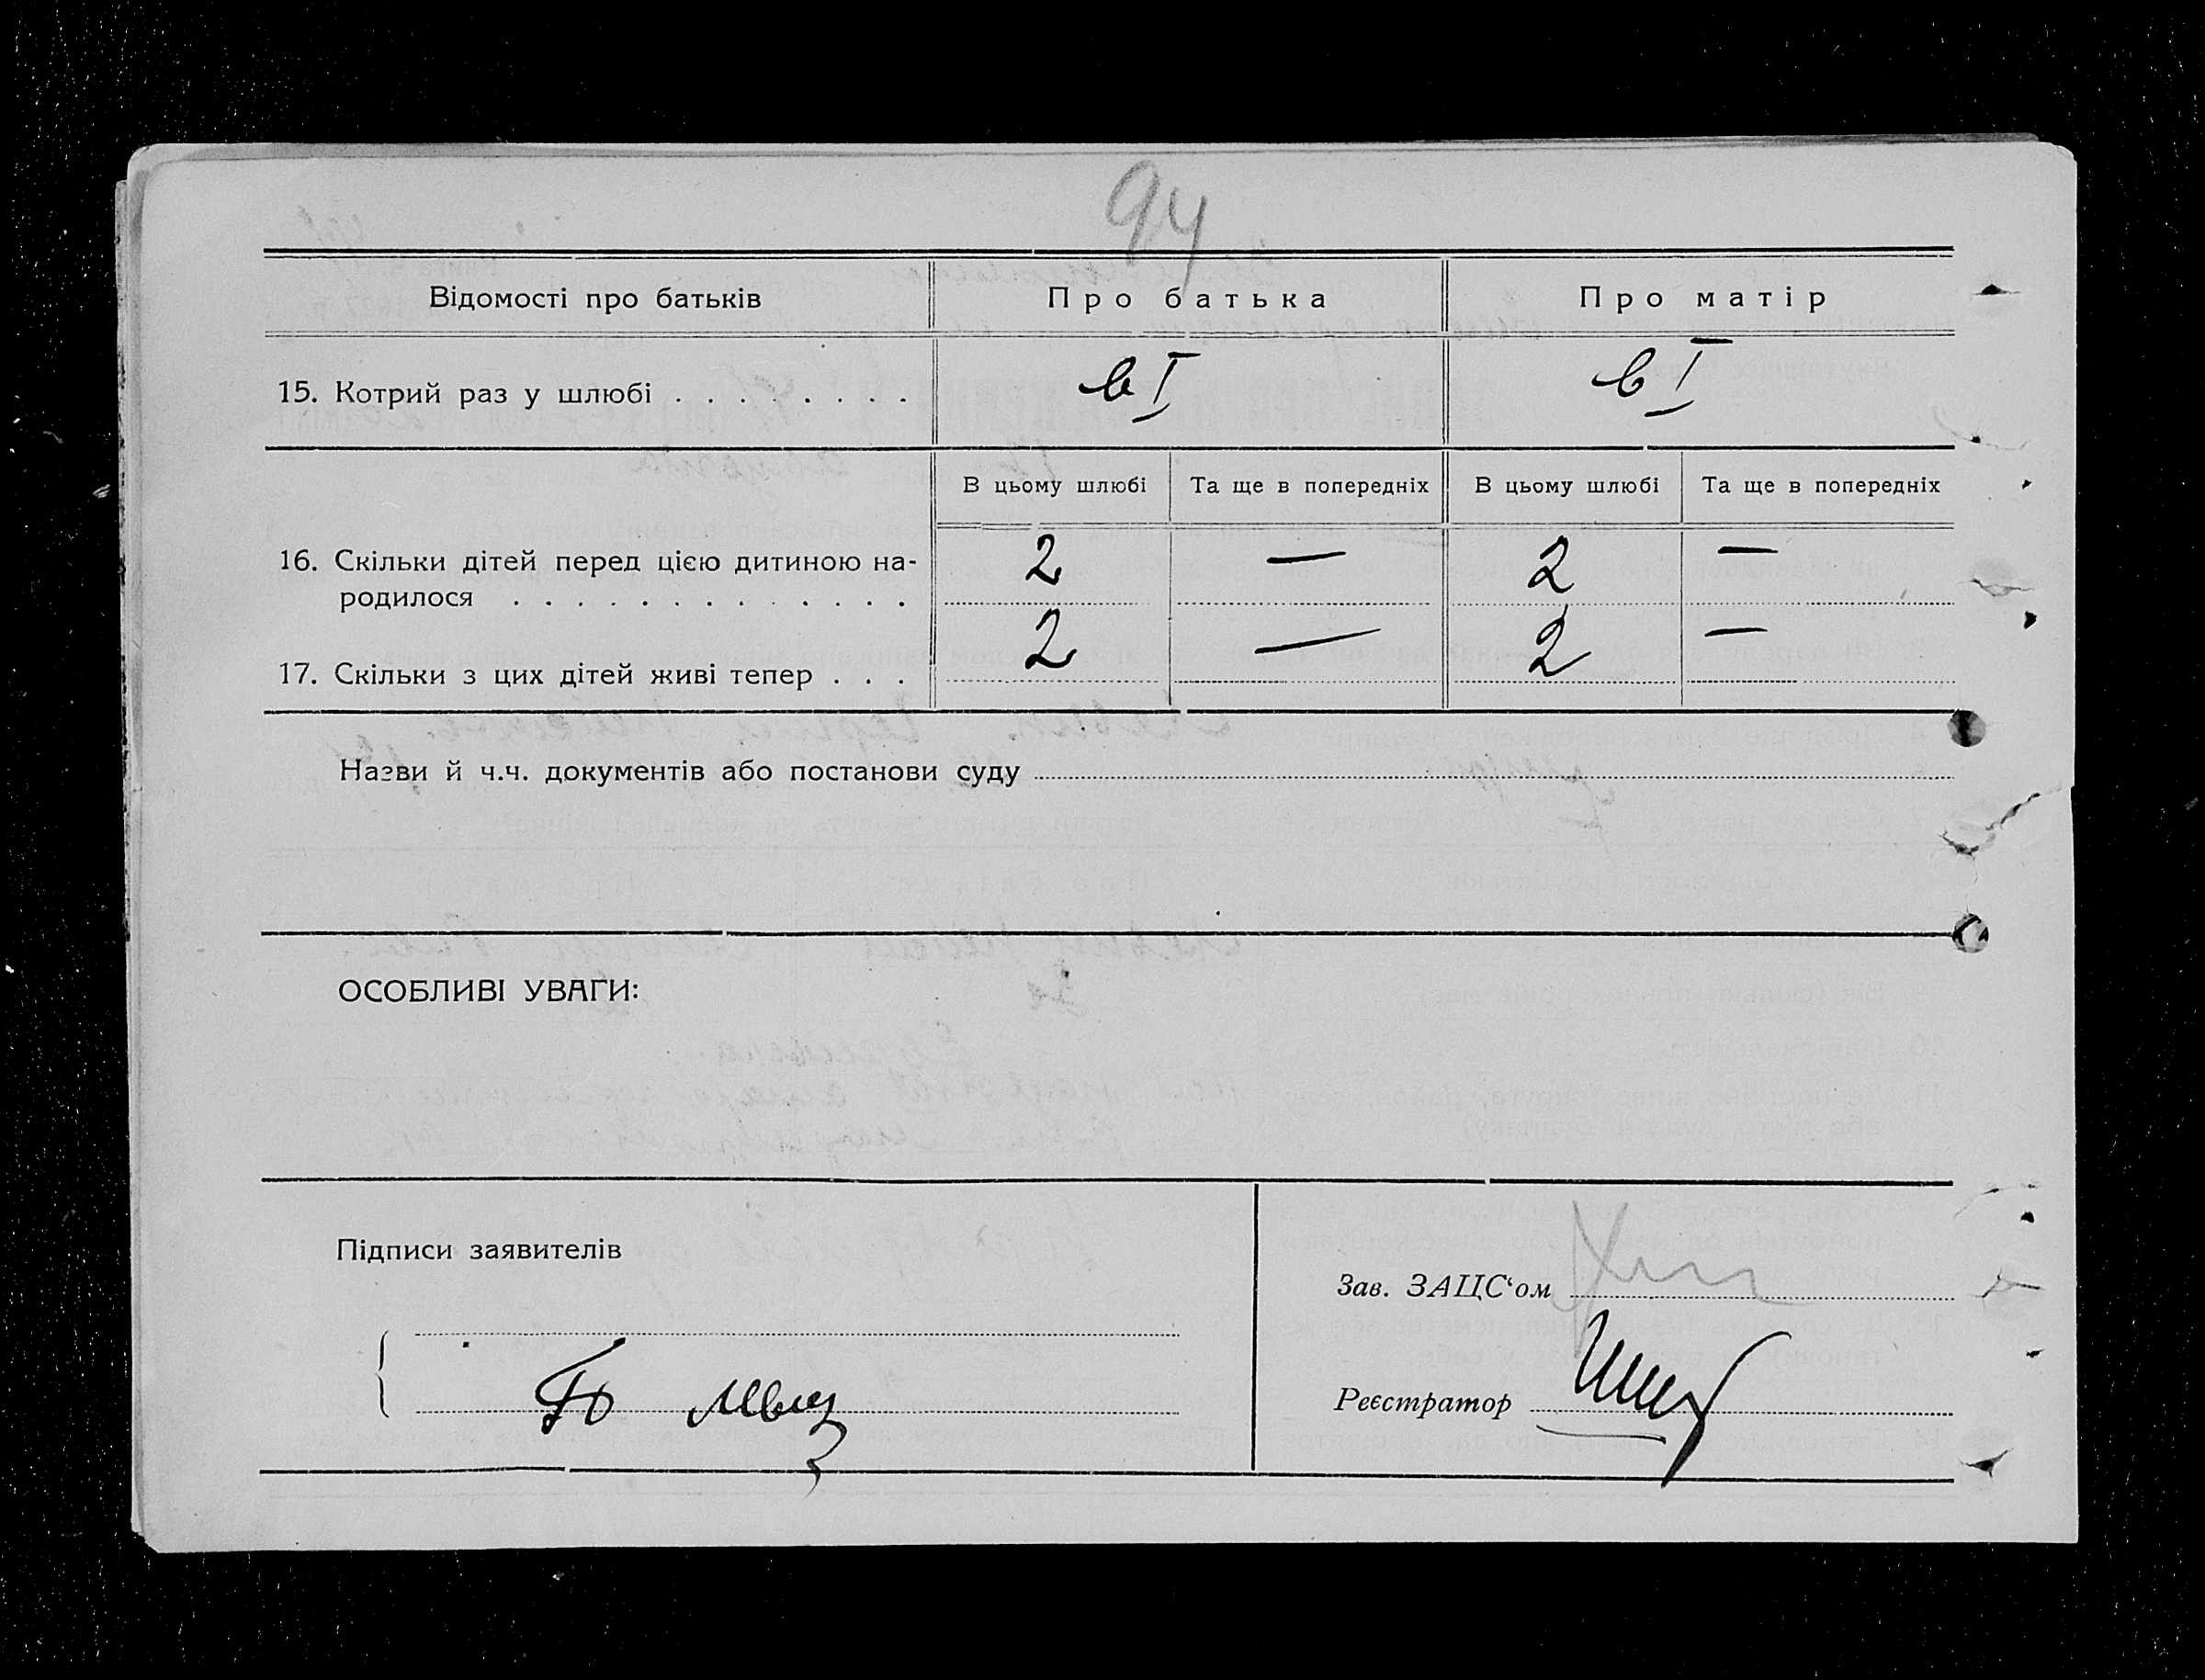 94
Відомості про батьків Про батька Про матір
15. Котрий раз у шлюбі . . . . . . . . в I в I
В цьому шлюбі Та ще в попередніх В цьому шлюбі Та ще в попередніх
16. Скільки дітей перед цією дитиною на- 2 — 2 —
родилося . . . . . . . . . . . . .
17. Скільки з цих дітей живі тепер . . . 2 — 2 —
Назви й ч.ч. документів або постанови суду
ОСОБЛИВІ УВАГИ:
Підписи заявителів
Зав. ЗАЦС‘ом
Реєстратор